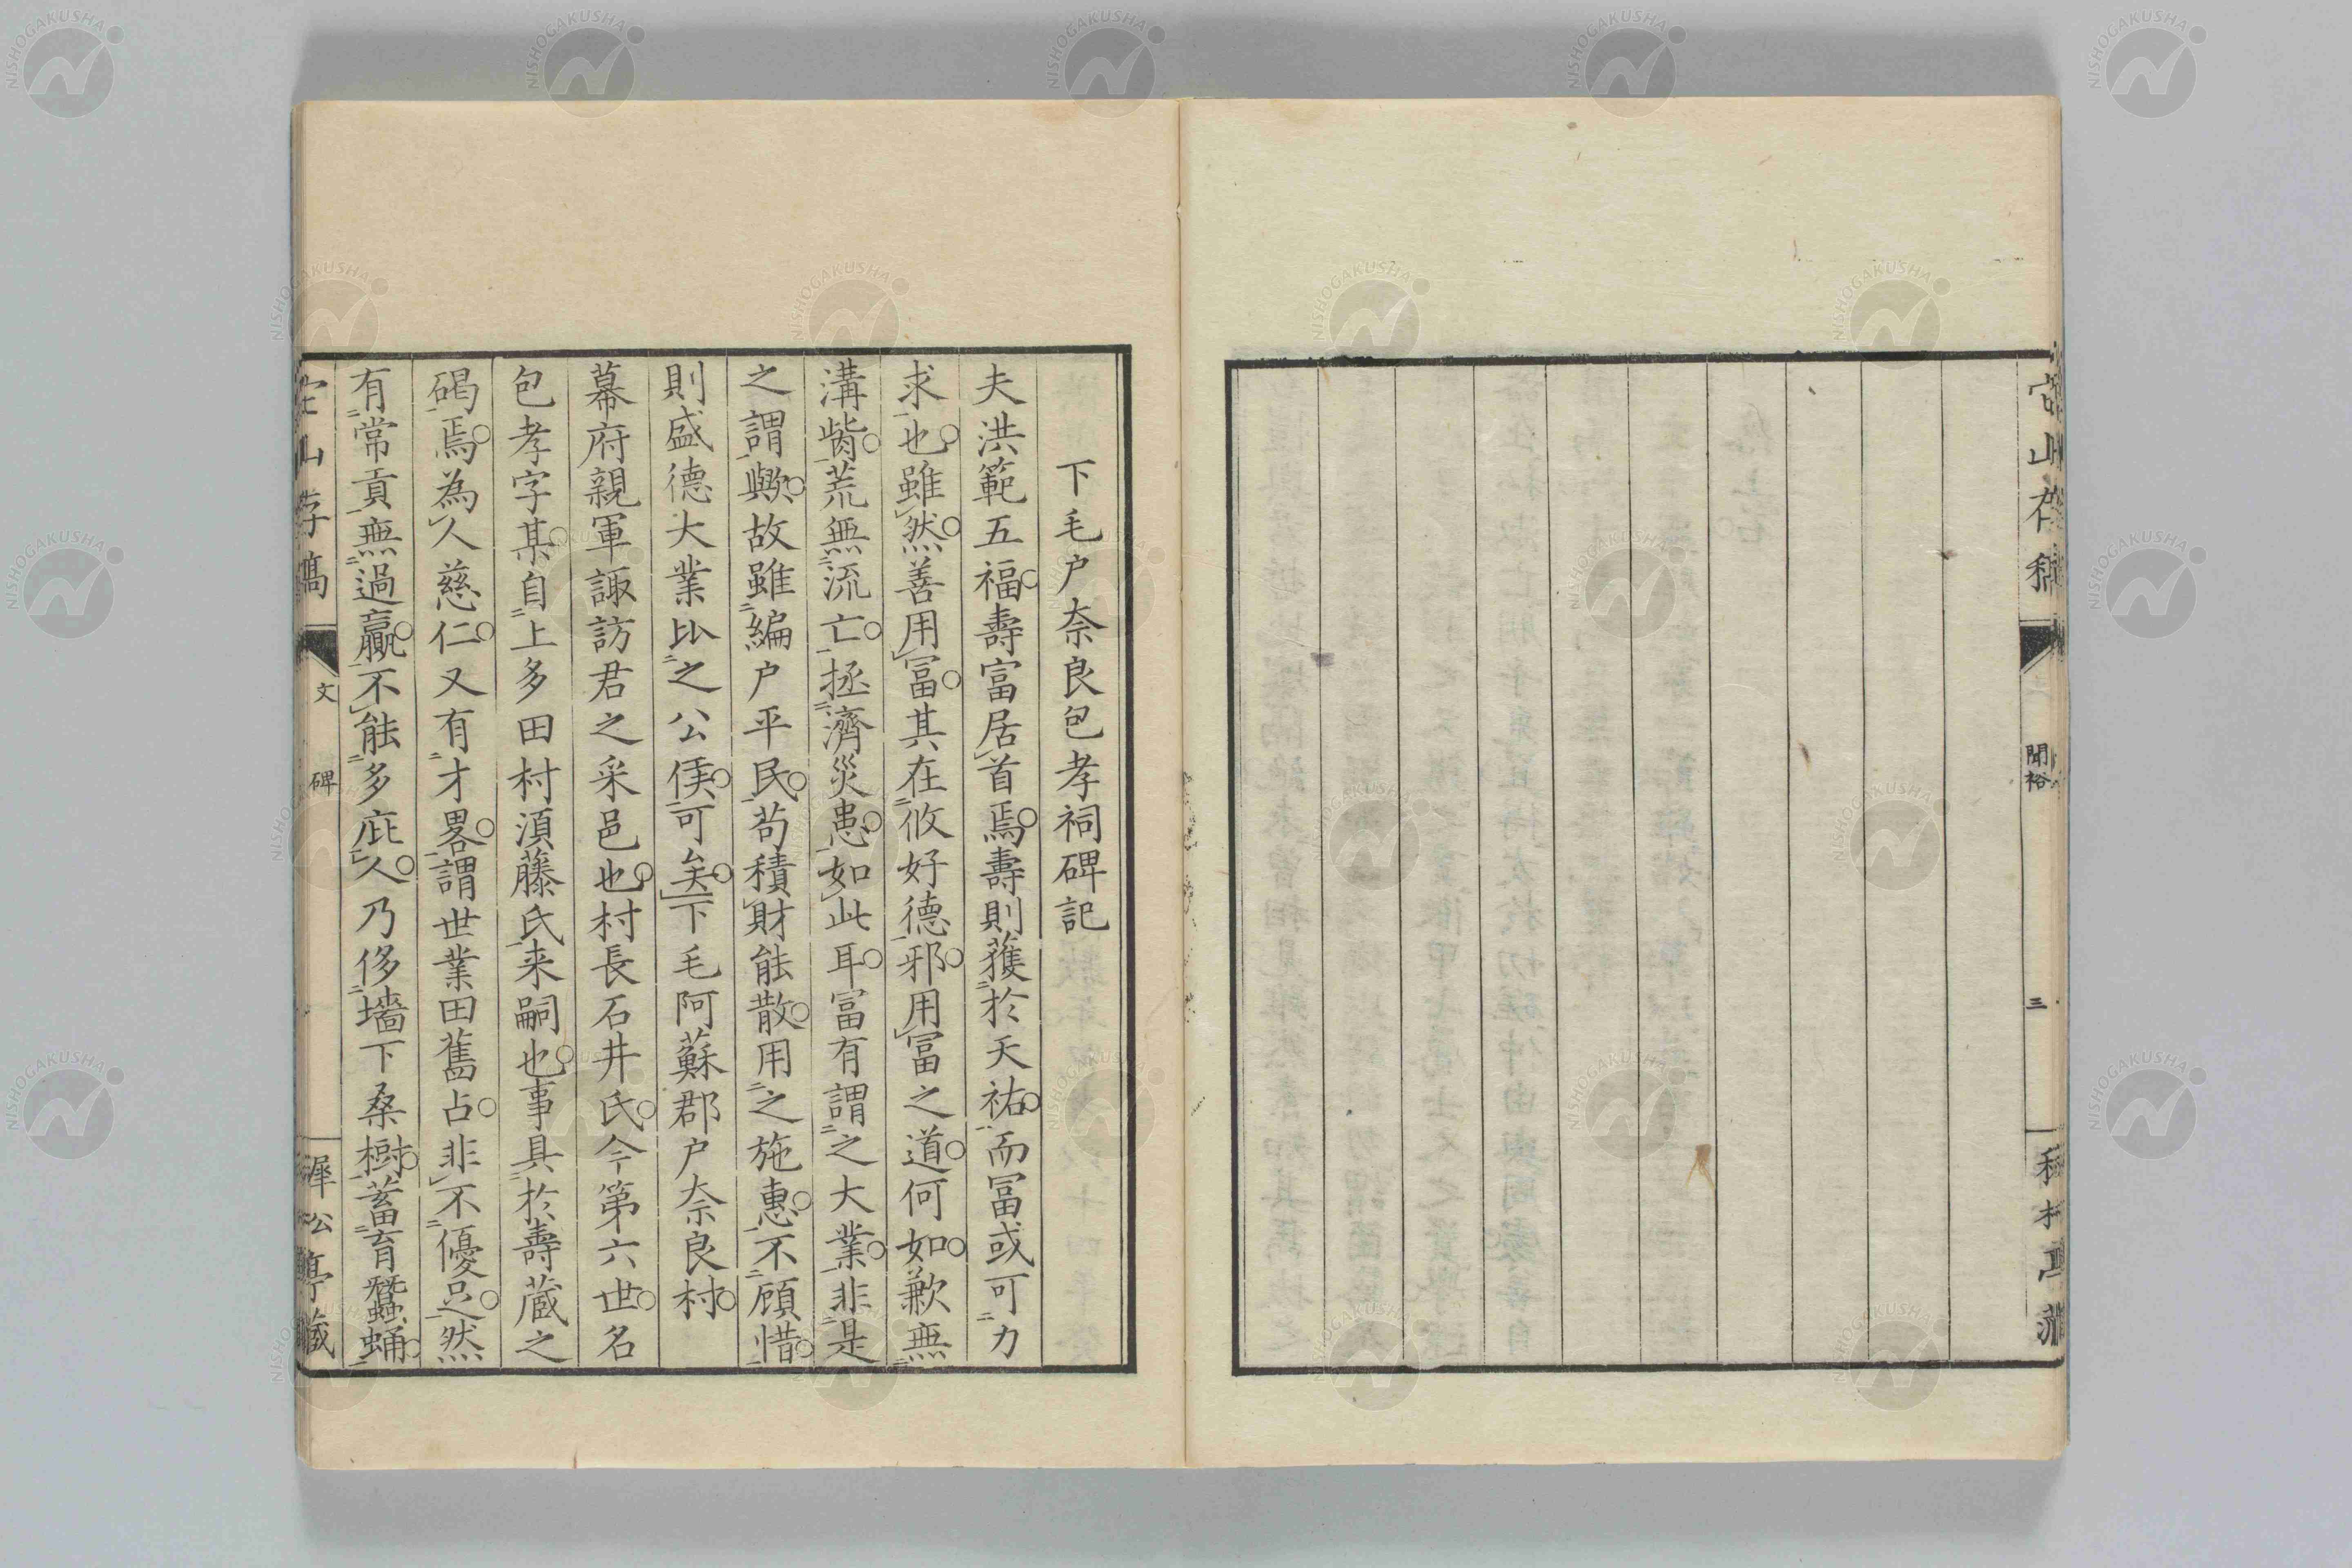 聞裕
三
下毛户奈良包孝祠碑記
夫洪範五福壽富居首焉壽則獲於天祐而冨或可力
求也雖然善用冨其在攸好德邪用冨之道何如歉無
溝胔荒無流亡拯濟災患如此耳冨有謂之大業非是
之謂歟故雖編户平民苟積財能散用之施惠不顧惜
則盛德大業比之公侯可矣下毛阿蘇郡户奈良村
幕府親軍諏訪君之采邑也村長石井氏今第六世名
包孝字某自上多田村須藤氏来嗣也事具於壽蔵之
碣焉為人慈仁又有才畧謂世業田舊占非不優足然
有常貢無過贏不能多庇人乃侈墻下桑樹蓄育蠶蛹
山存稿
文
碑
松亭藏
NISHOGAKUSHA